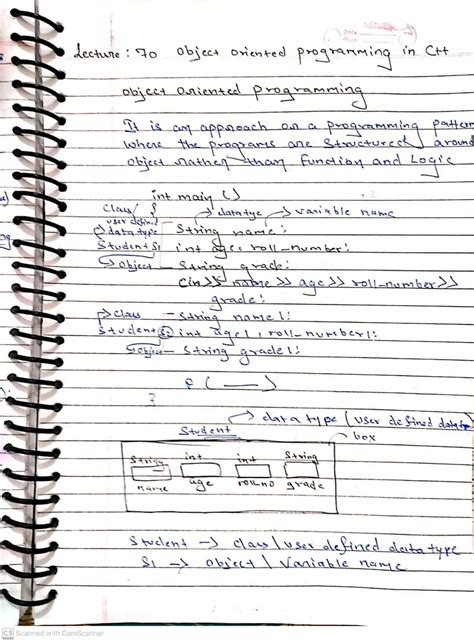 Lecture : 70 Object oriented programming in C++
Object Oriented Programming
It is an approach or a programming pattern
where the programs are structured around
object rather than function and Logic
int main ()
class/ { → datatye → variable name
user defined
→ data type String name;
Student S1 int age, roll-number;
→ Object String grade;
cin>> name >> age >> roll-number >>
grade;
→ class String name1;
Student S2 int age1, roll-number1;
→ object String grade1;
F ( )
}
→ data type / user defined data
Student box
String int int String
name age rollno grade
Student → class / user defined data type
S1 → object / Variable name
CS Scanned with CamScanner